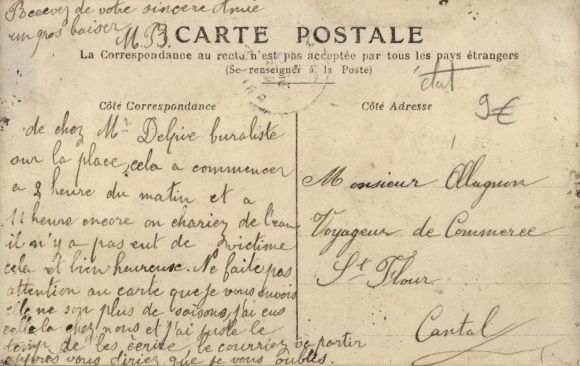 Recevez de votre sincère Amie
un gros baiser
M. B.
CARTE POSTALE
La Correspondance au recto n'est pas acceptée par tous les pays étrangers
(Se renseigner à la Poste)
état
9€
Côté Correspondance
Côté Adresse
de chez Mr Delpire buraliste
sur la place, cela a commencer
a 3 heure du matin et a
11 heure encore on chariez de l'eau
il n'y a pas eut de victime
cela et bien heureuse. Ne faite pas
attention au carte que je vous envois
elle ne son plus de saisons, j'ai eus
celle la chez nous et j'ai juste le
temp de les écrire le courriez va partir
après vous diriez que je vous oublis.
Monsieur Allagnon
Voyageur de Commerce
St Flour
Cantal